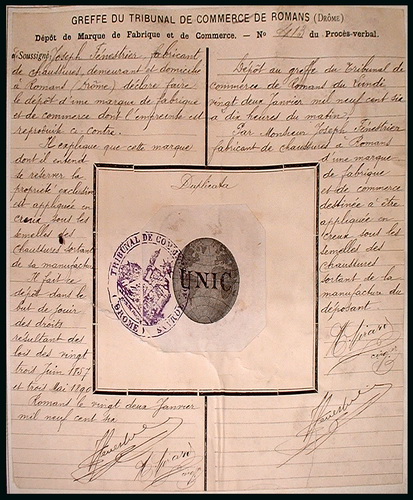 GREFFE DU TRIBUNAL DE COMMERCE DE ROMANS (DRÔME)
Dépôt de Marque de Fabrique et de Commerce. — No 413 du Procès-verbal.
Soussigné Joseph Fenestrier, fabricant
de chaussures, demeurant et domicilié
à Romans (Drôme) déclare faire
le dépôt d'une marque de fabrique
et de commerce dont l'empreinte est
reproduite ci-contre.
Il explique que cette marque
dont il entend
se réserver la
propriété exclusive
est appliquée en
creux sous les
semelles des
chaussures sortant
de sa manufacture
Il fait ce
dépôt dans le
but de jouir
des droits
résultant des
lois des vingt
trois juin 1857
et trois Mai 1890
Romans le vingt deux Janvier
mil neuf cent six
Dépôt au greffe du Tribunal de
commerce de Romans du lundi
vingt deux janvier mil neuf cent six
à dix heures du matin
Par Monsieur Joseph Fenestrier
fabricant de chaussures à Romans
d'une marque
de fabrique
et de commerce
destinée à être
appliquée en
creux sous les
semelles des
chaussures
sortant de la
manufacture du
déposant
Duplicata
TRIBUNAL DE COMM
(DRÔME)
UNIC